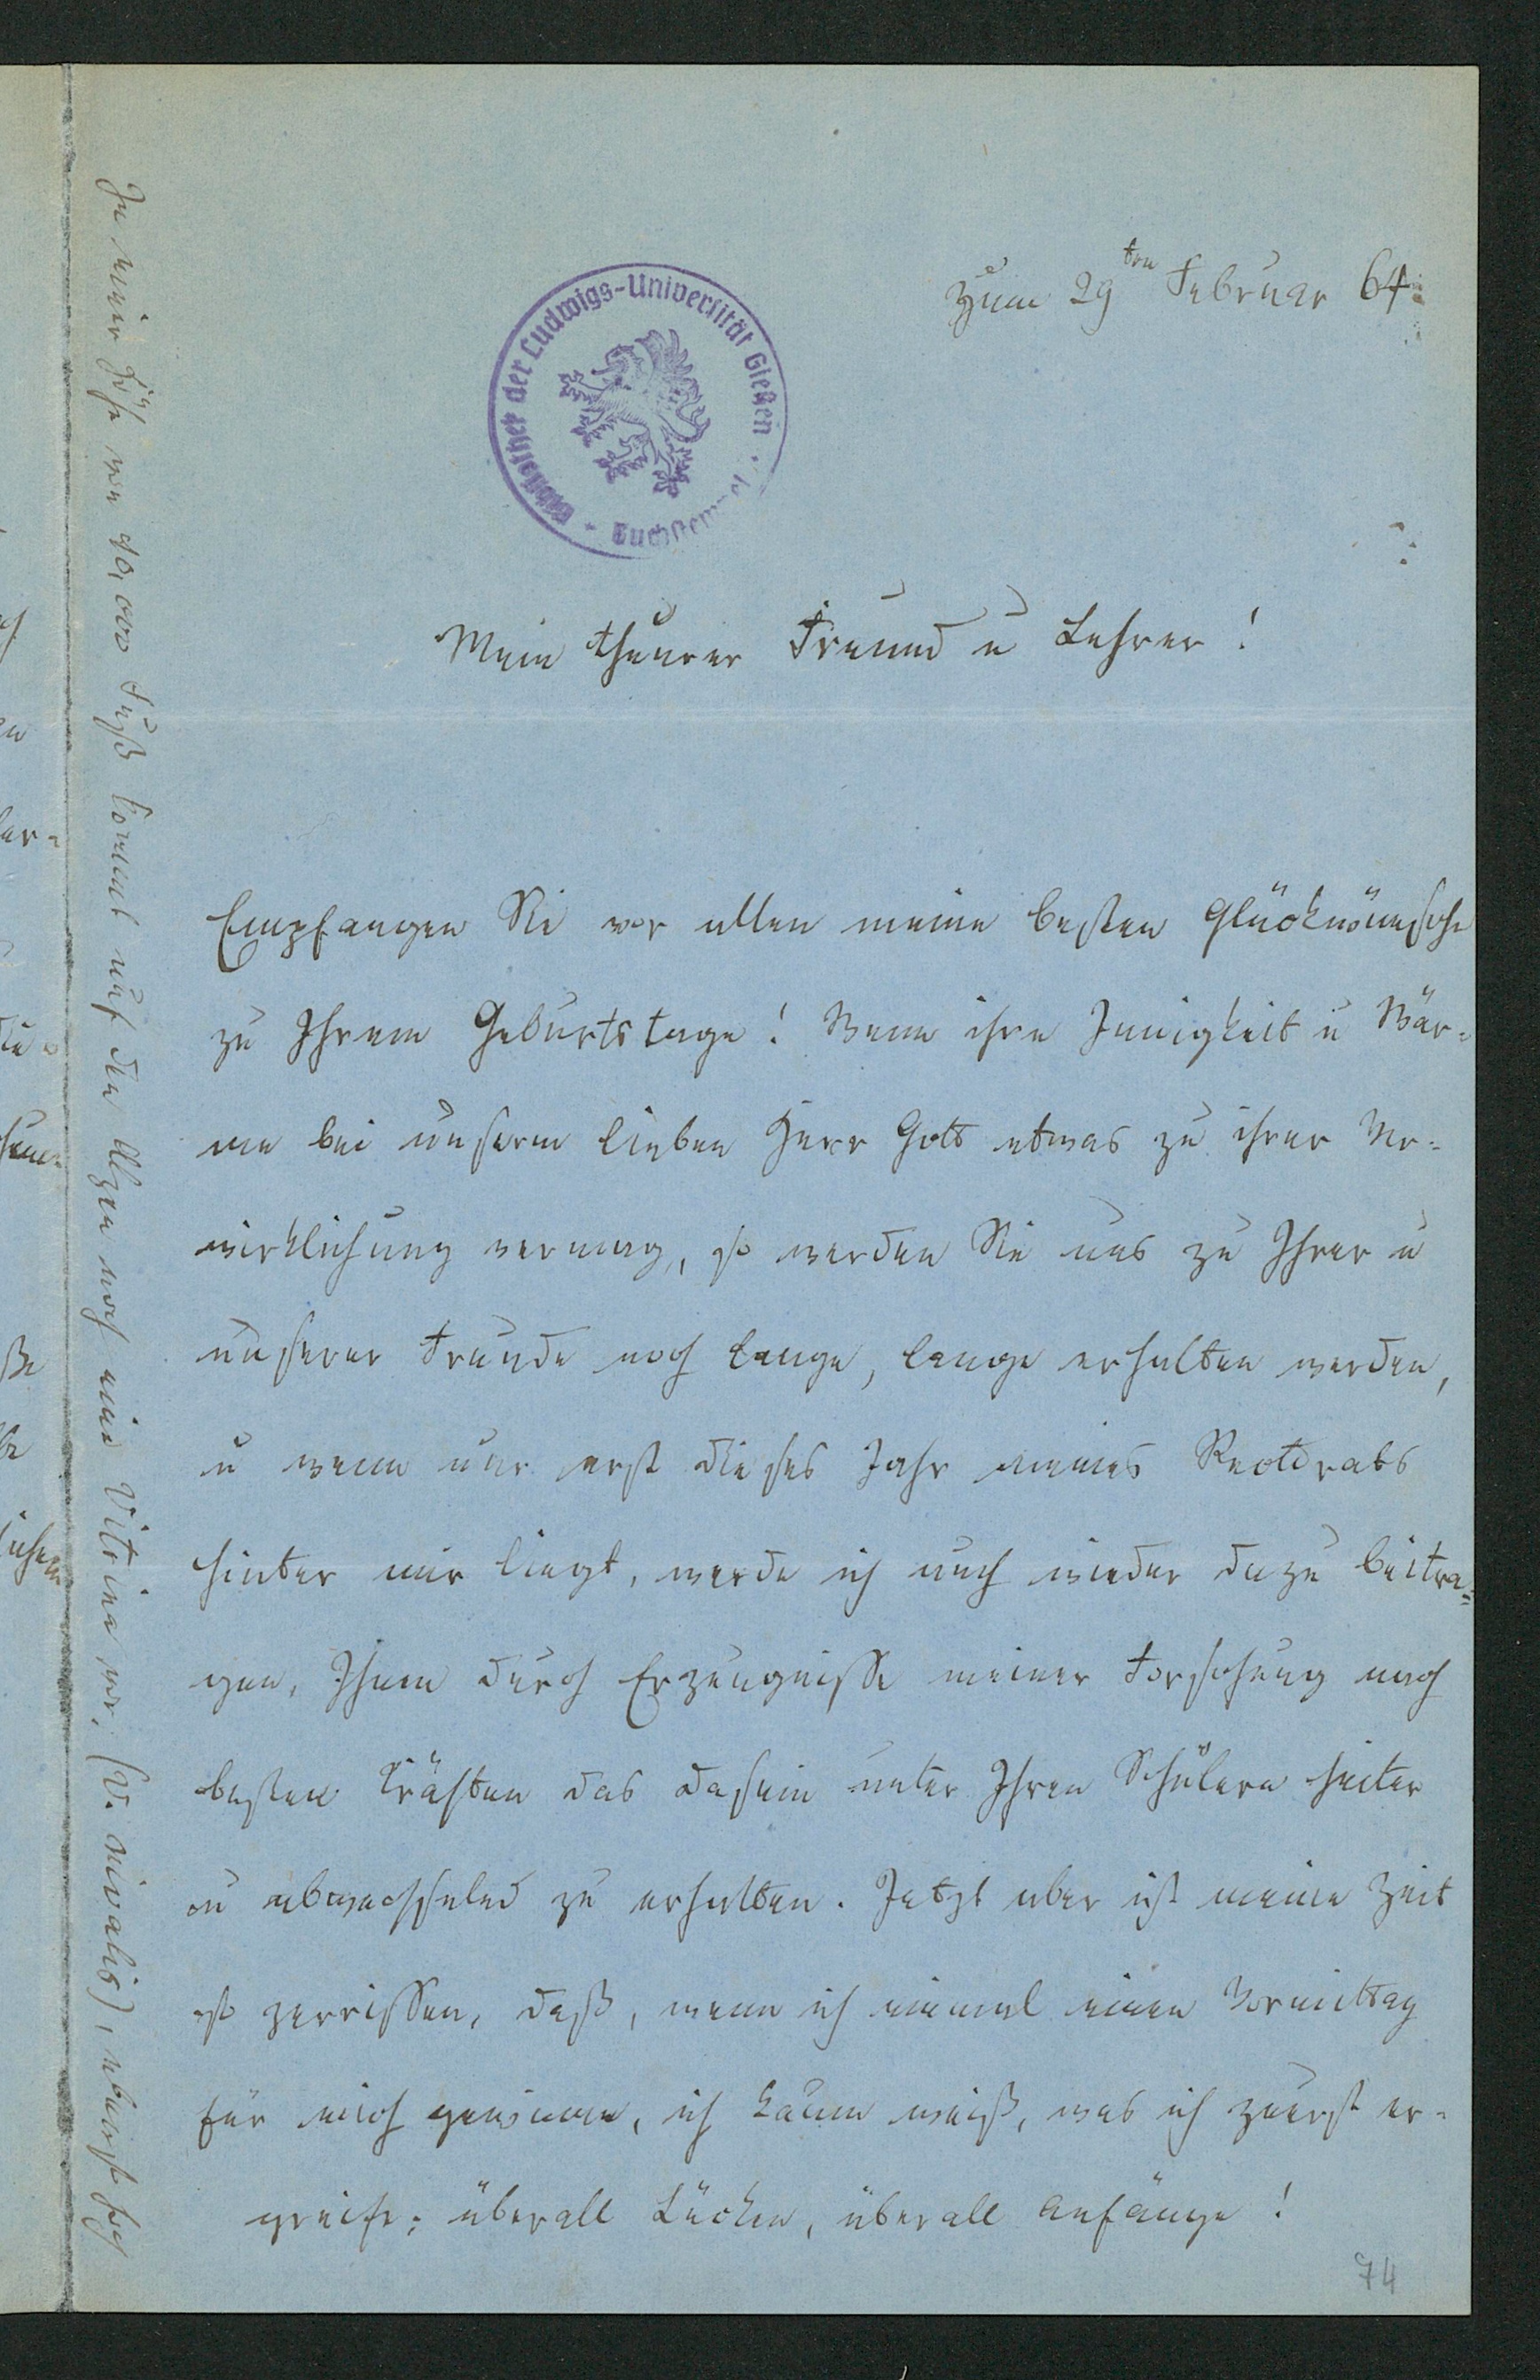 zum 29ten Februar 64.
Bibliothek der Ludwigs-Universität Gießen
Mein theurer Freund u Lehrer!
Empfangen Sie vor allen meine besten Glückwünsche
zu Ihrem Geburtstage! Wenn ihre Innigkeit u Wär-
me bei unserm lieben Herr Gott etwas zu ihrer Ver-
wirklichung vermag, so werden Sie uns zu Ihrer u
unserer Freude noch lange, lange erhalten werden,
u wenn nur erst dieses Jahr meines Rectorats
hinter mir liegt, werde ich auch wieder dazu beitra-
gen, Ihnen durch Erzeugnisse meiner Forschung nach
besten Kräften das Dasein unter Ihren Schülern heiter
u abwechselnd zu erhalten. Jetzt aber ist meine Zeit
so zerrissen, daß, wenn ich einmal einen Vormittag
für mich gewinne, ich kaum weiß, was ich zuerst er-
greife; überall Lücken, überall Anfänge!
74
In einer Höhe von 10,000 Fuß kommt auf den Alpen noch eine Vitrina vor, (V. nivalis), überhaupt